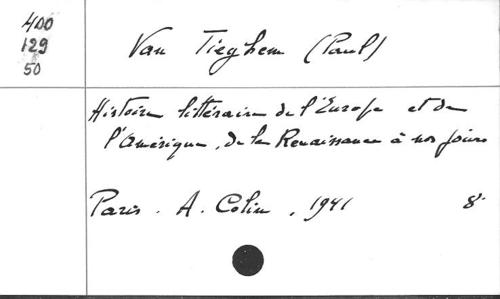 400
129
50
Van Tieghem (Paul)
Histoire littéraire de l'Europe et de
l'Amérique, de la Renaissance à nos jours
Paris. A. Colin, 1941 8°